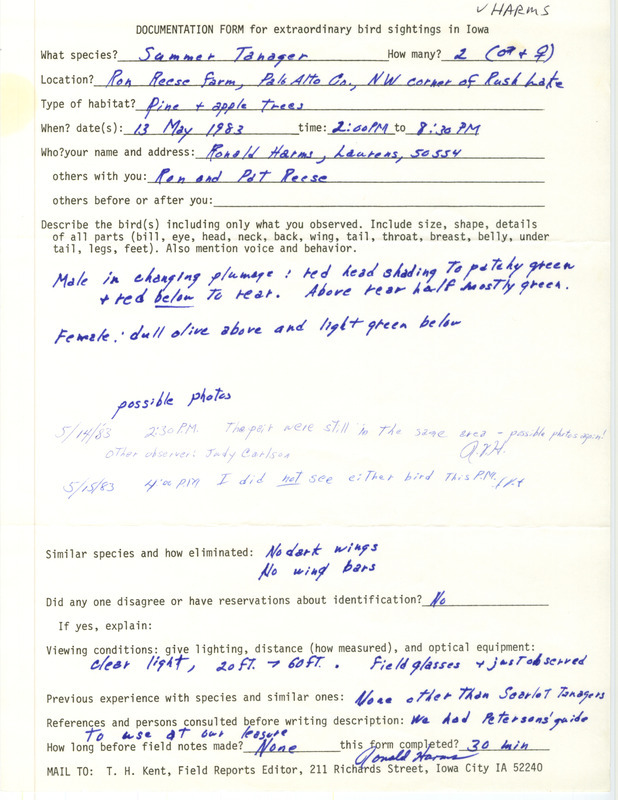 ✓ HARMS
DOCUMENTATION FORM for extraordinary bird sightings in Iowa
What species? Summer Tanager How many? 2 (♂ + ♀)
Location? Ron Reese Farm, Palo Alto Co., NW corner of Rush Lake
Type of habitat? Pine + apple trees
When? date(s): 13 May 1983 time: 2:00PM to 8:30 PM
Who?your name and address: Ronald Harms, Laurens, 50554
others with you: Ron and Pat Reese
others before or after you:
Describe the bird(s) including only what you observed. Include size, shape, details
of all parts (bill, eye, head, neck, back, wing, tail, throat, breast, belly, under
tail, legs, feet). Also mention voice and behavior.
Male in changing plumage: red head shading To patchy green
+ red below To rear. Above rear half mostly green.
Female: dull olive above and light green below
possible photos
5/14/83 2:30 P.M. The pair were still in the same area - possible photos again!
Other observer: Judy Carlson
5/15/83 4:00 PM I did not see either bird This P.M.
Similar species and how eliminated: No dark wings
No wing bars
Did any one disagree or have reservations about identification? No
If yes, explain:
Viewing conditions: give lighting, distance (how measured), and optical equipment:
clear light, 20 ft. → 60 ft. Field glasses + just observed
Previous experience with species and similar ones: None other Than Scarlet Tanagers
References and persons consulted before writing description: We had Petersons' guide
To use at our leasure
How long before field notes made? None this form completed? 30 min
Ronald Harms
MAIL TO: T. H. Kent, Field Reports Editor, 211 Richards Street, Iowa City IA 52240